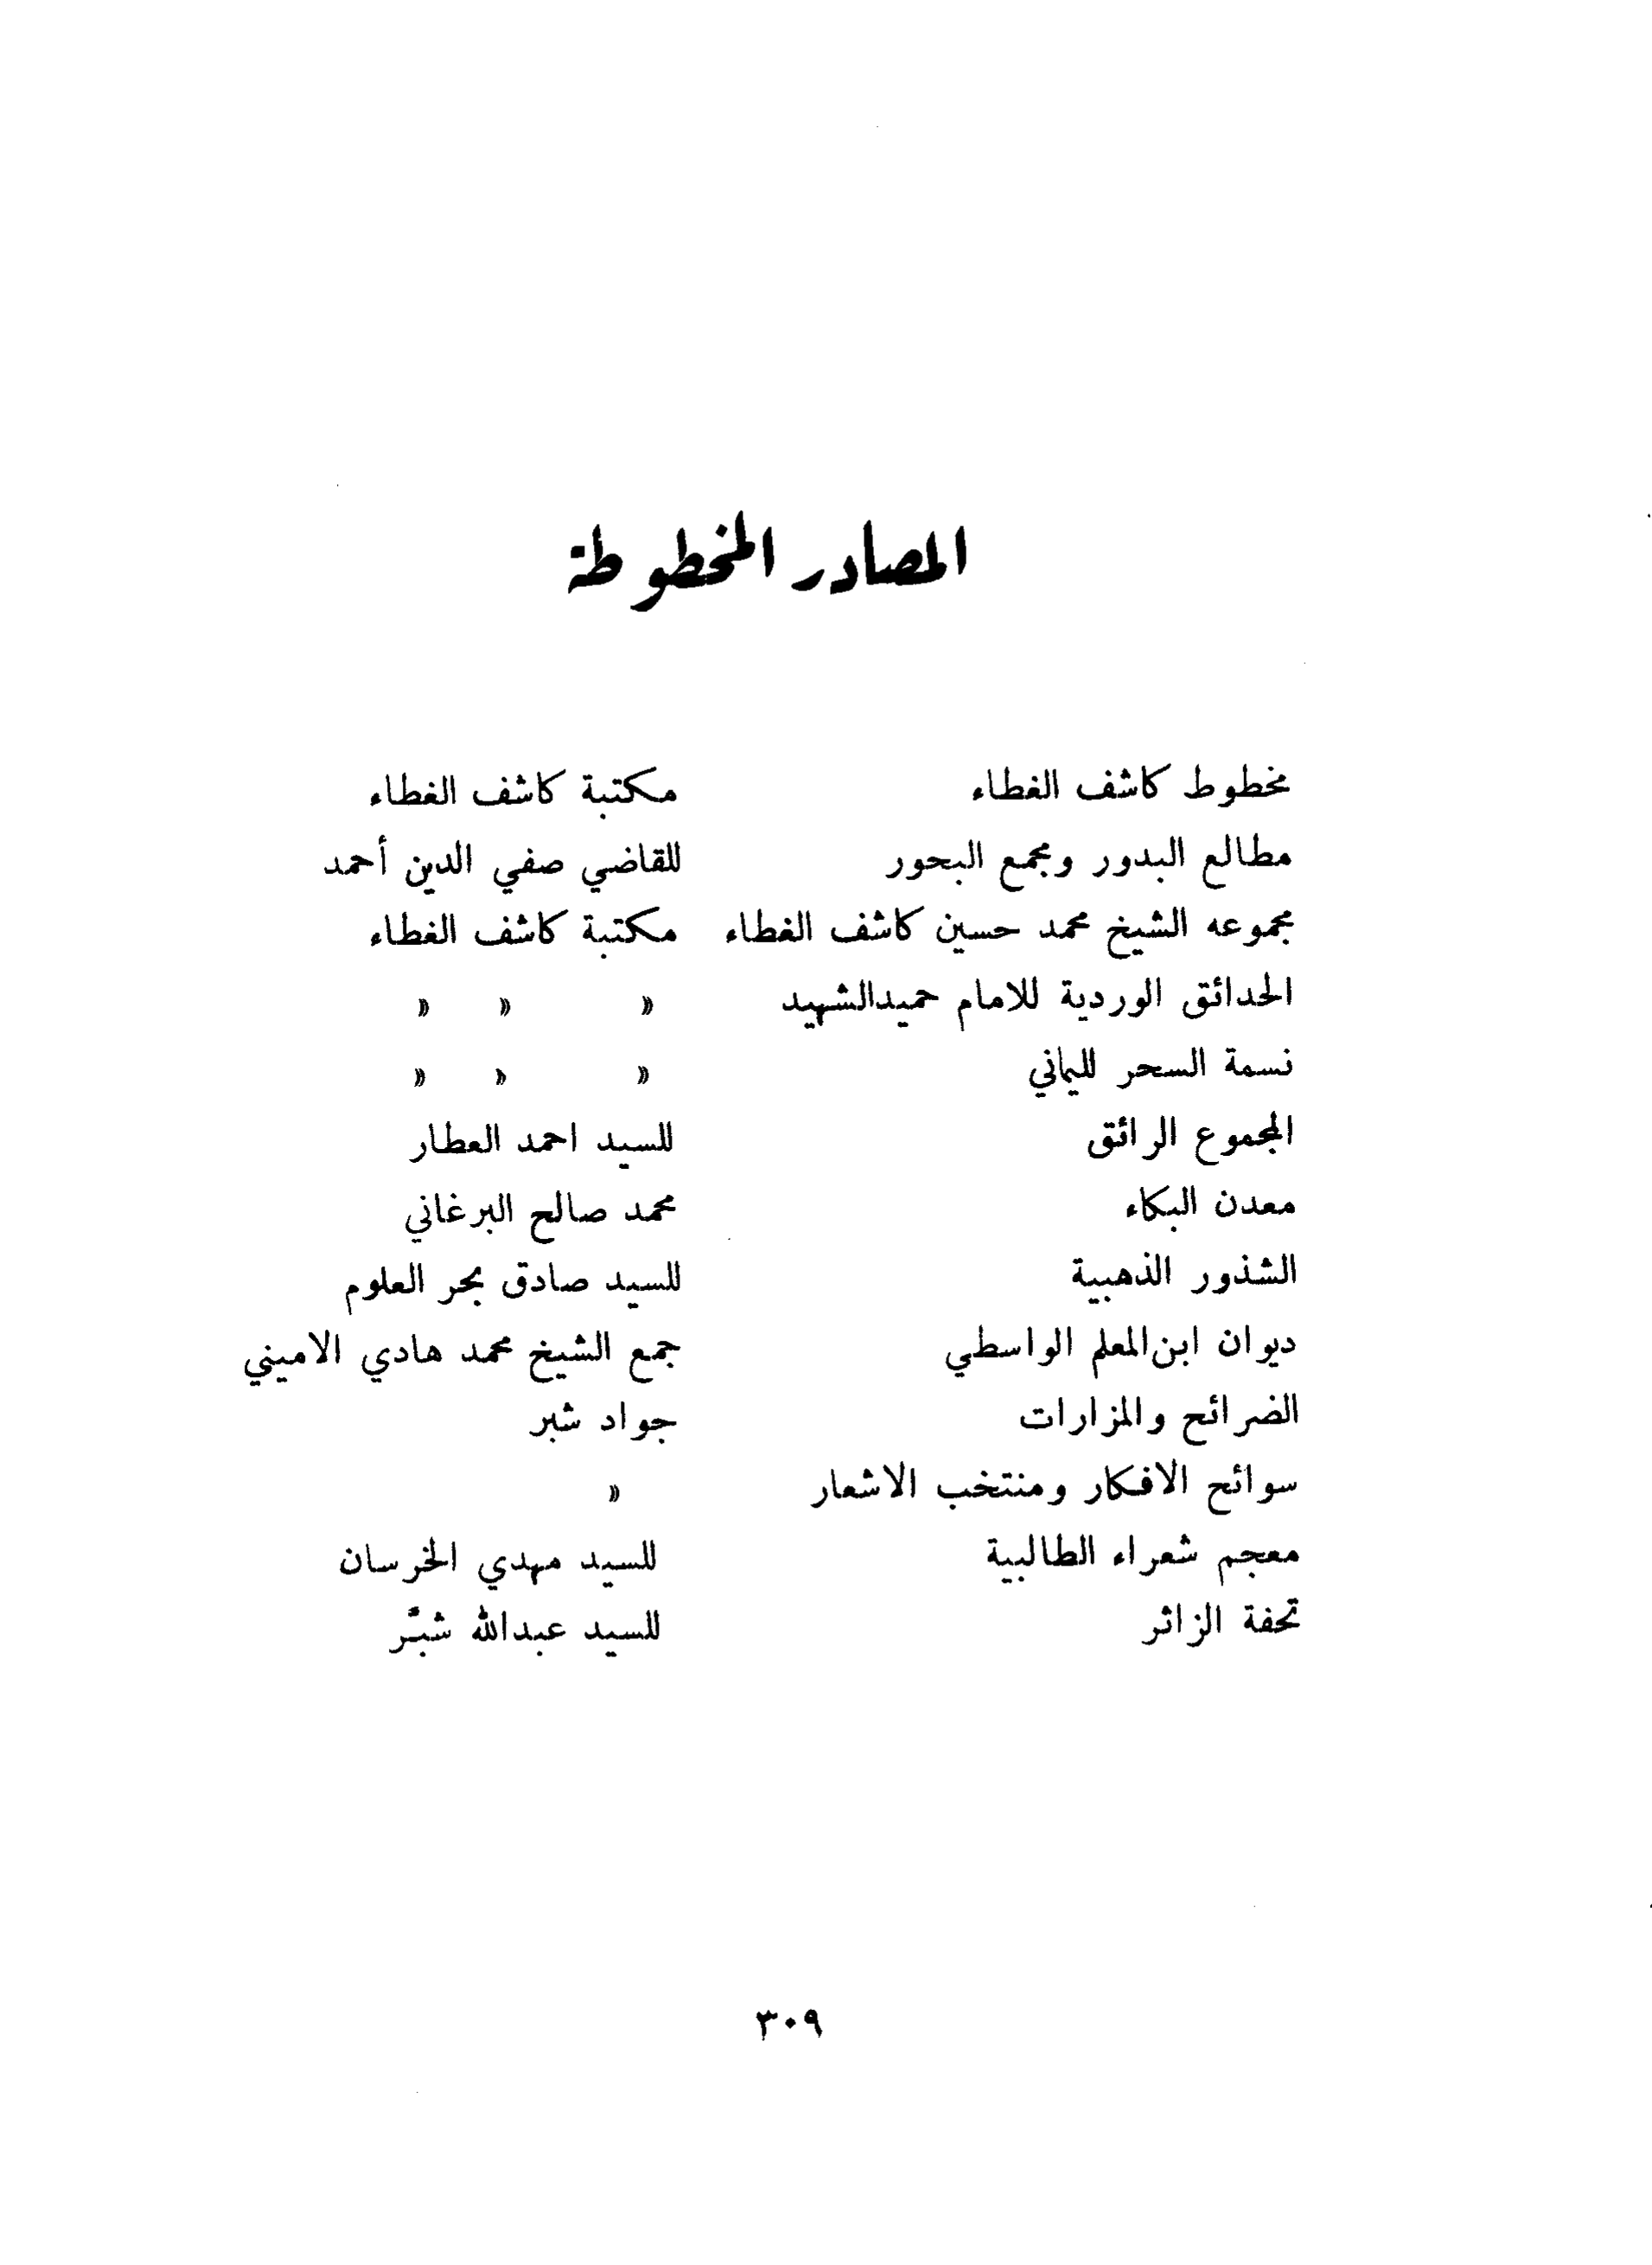 المصادر المخطوطة
مخطوط كاشف الغطاء مكتبة كاشف الغطاء
مطالع البدور ومجمع البحور للقاضي صفي الدين أحمد
مجموعه الشيخ محمد حسين كاشف الغطاء مكتبة كاشف الغطاء
الحدائق الوردية للامام حميدالشهيد » » »
نسمة السحر لليماني » » »
المجموع الرائق للسيد احمد العطار
معدن البكاء محمد صالح البرغاني
الشذور الذهبية للسيد صادق بحر العلوم
ديوان ابن المعلم الواسطي جمع الشيخ محمد هادي الاميني
الضرائح والمزارات جواد شبر
سوائح الافكار ومنتخب الاشعار »
معجم شعراء الطالبية للسيد مهدي الخرسان
تحفة الزائر للسيد عبدالله شبّر
٣٠٩